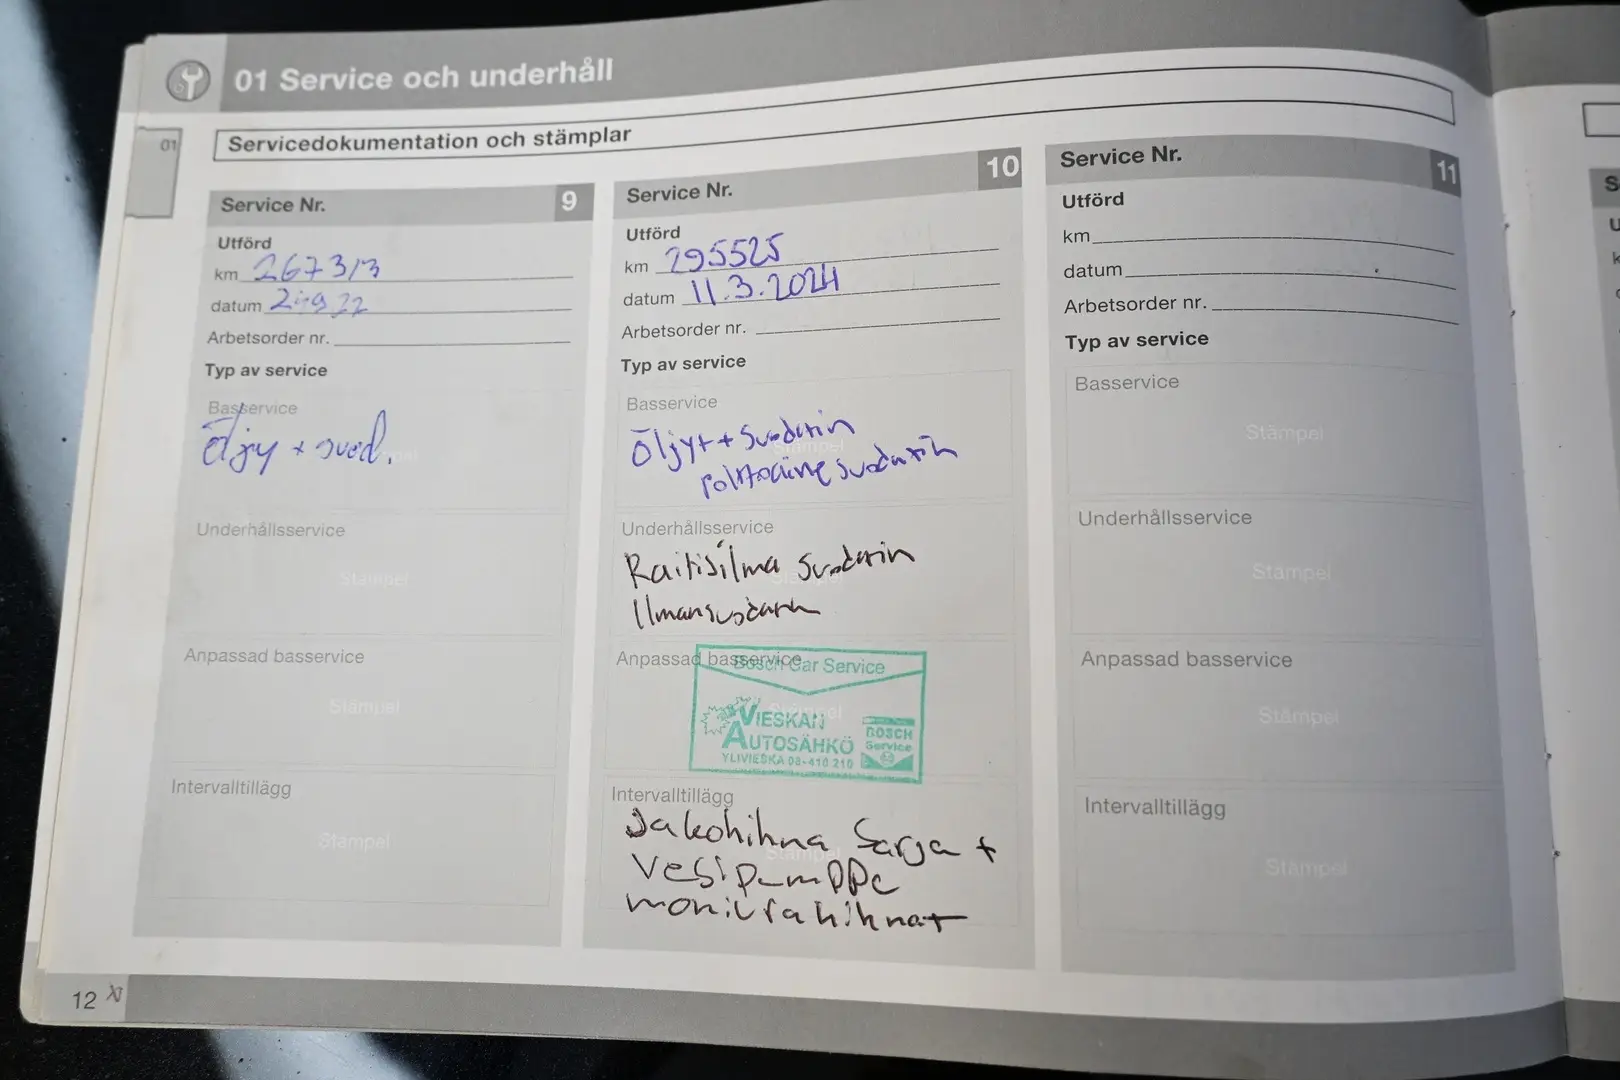 01 Service och underhåll
01
Servicedokumentation och stämplar
Service Nr. 9
Utförd
km 267313
datum
Arbetsorder nr.
Typ av service
Basservice
Öljy + suod.
Underhållsservice
Stämpel
Anpassad basservice
Stämpel
Intervalltillägg
Stämpel
Service Nr. 10
Utförd
km 295525
datum 11.3.2024
Arbetsorder nr.
Typ av service
Basservice
Stämpel
Öljyt + suodatin
polttoaine suodatin
Underhållsservice
Raitisilma suodatin
Ilmansuodatin
Anpassad basservice
Bosch Car Service
VIESKAN
AUTOSÄHKÖ
YLIVIESKA 08-410 210
BOSCH
Service
Intervalltillägg
Jakohihna sarja +
Vesipumppu
moniurahihnat
Service Nr. 11
Utförd
km
datum
Arbetsorder nr.
Typ av service
Basservice
Stämpel
Underhållsservice
Stämpel
Anpassad basservice
Stämpel
Intervalltillägg
Stämpel
12